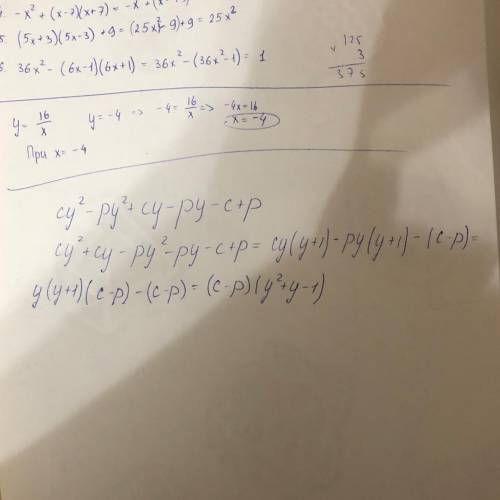 4. -x² + (x-7)(x+7) = -x² + (x
5. (5x+3)(5x-3) + 9 = (25x² - 9)+9 = 25x²
6. 36x² - (6x-1)(6x+1) = 36x² - (36x² - 1) = 1
125
× 3
375
y = 16/x y = -4 => -4 = 16/x => -4x=16
x = -4
При x = -4
cy² - py² + cy - py - c + p
cy² + cy - py² - py - c + p = cy(y+1) - py(y+1) - (c-p) =
y(y+1)(c-p) - (c-p) = (c-p)(y²+y-1)